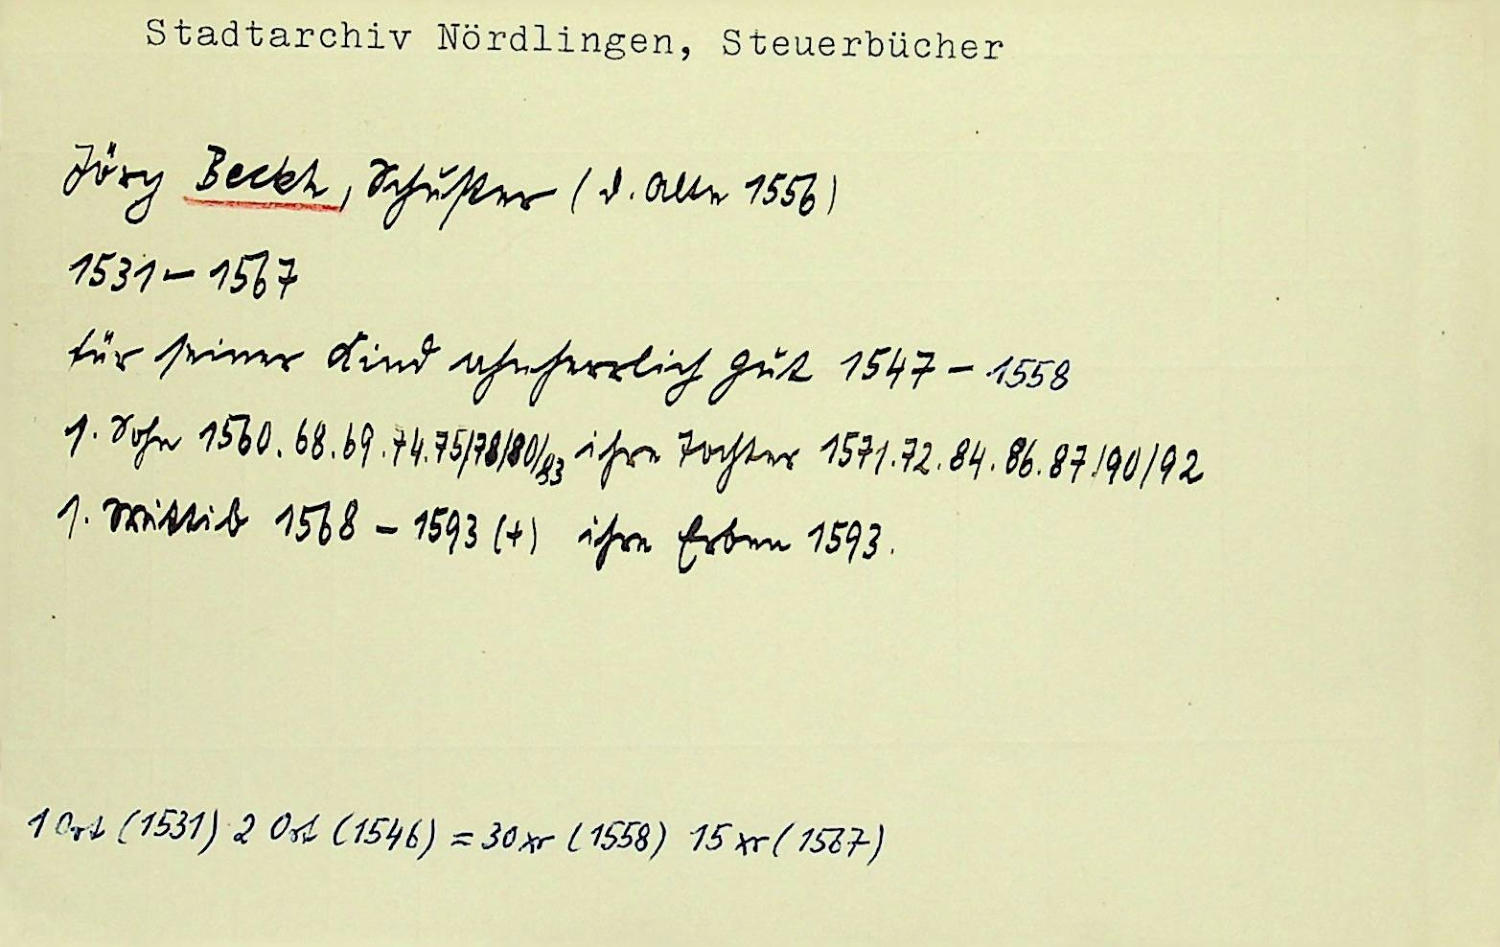 Stadtarchiv Nördlingen, Steuerbücher
Jörg Beckh, Schuster (d. Alte 1556)
1531 – 1567
für seiner Kind ahnherrlich Gut 1547 – 1558
1. Sohn 1560. 68. 69. 74. 75/78/80/83 ihre Tochter 1571. 72. 84. 86. 87/90/92
1. Wittib 1568 – 1593 (+) ihre Erben 1593.
1 Ort (1531) 2 Ort (1546) = 30 xr (1558) 15 xr (1567)